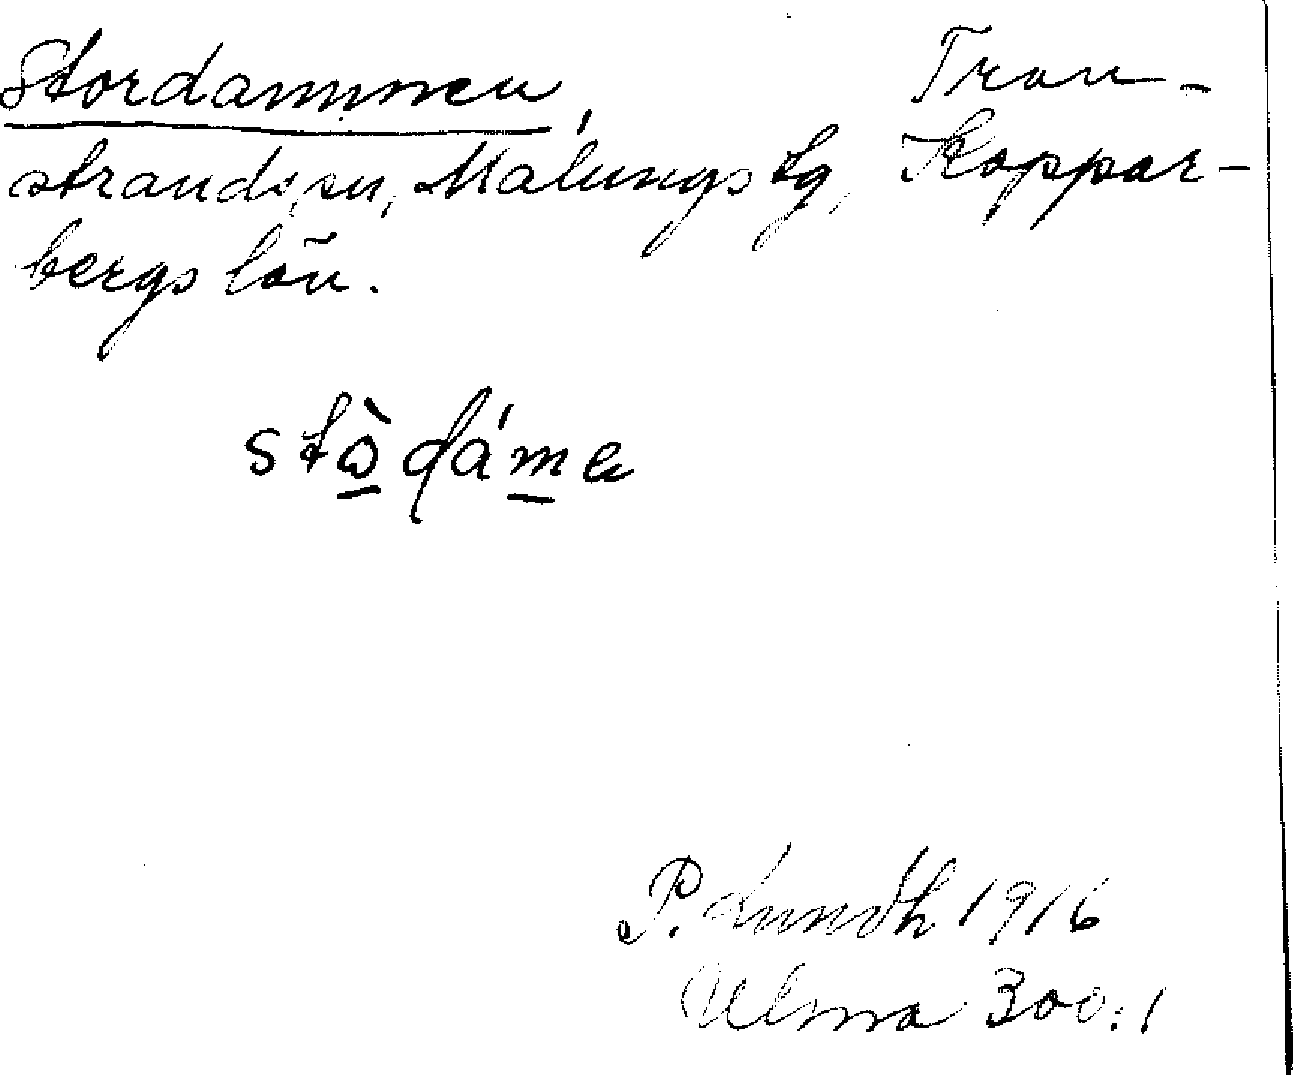 Stordammen, Tran-
strands sn, Malungs tg, Koppar-
bergs län.
stὼ̱dám̱e
P. Lundh 1916
Ulma 300:1